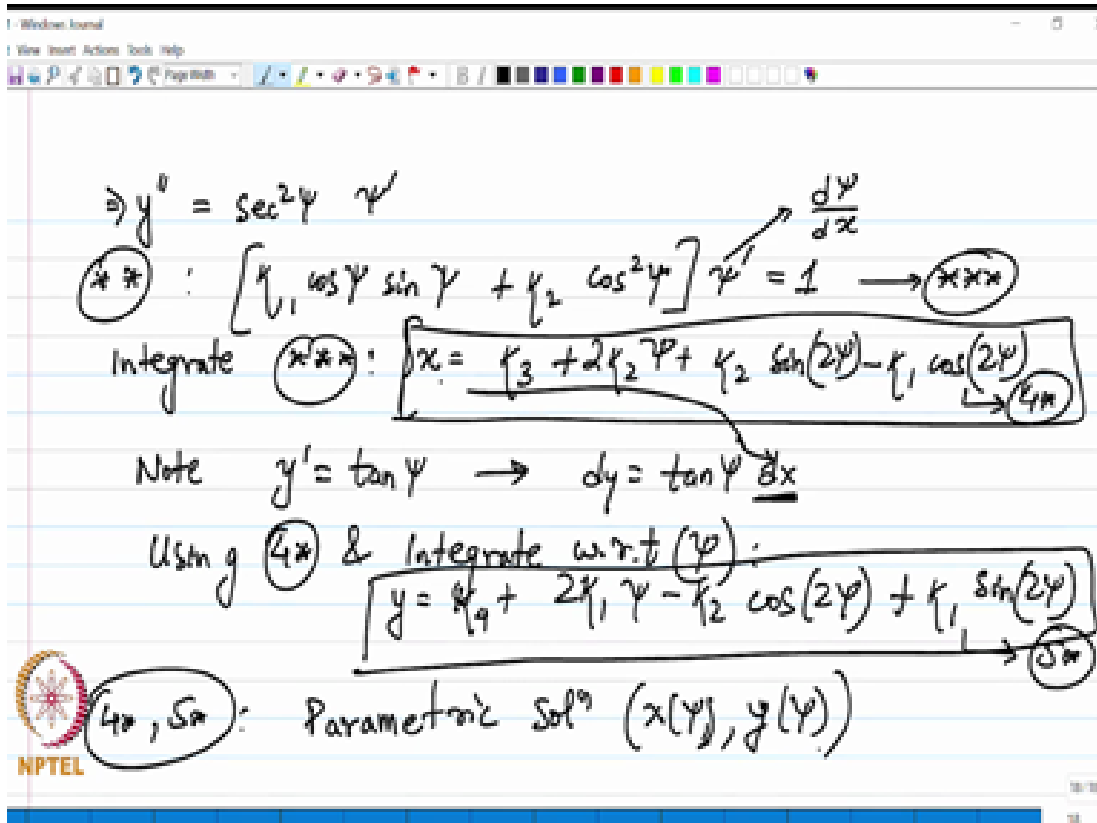 - Windows Journal
View Insert Actions Tools Help
Page Width
B I
⇒ y'' = sec²ψ ψ'
dψ/dx
** : [κ₁ cosψ sinψ + κ₂ cos²ψ] ψ' = 1 → ***
Integrate *** : x = κ₃ + 2κ₂ψ + κ₂ sin(2ψ) - κ₁ cos(2ψ)
→ 4*
Note y' = tanψ → dy = tanψ dx
Using 4* & Integrate w.r.t (ψ) :
y = κ₄ + 2κ₁ψ - κ₂ cos(2ψ) + κ₁ sin(2ψ)
→ 5*
4*, 5* : Parametric Solⁿ (x(ψ), y(ψ))
NPTEL
18